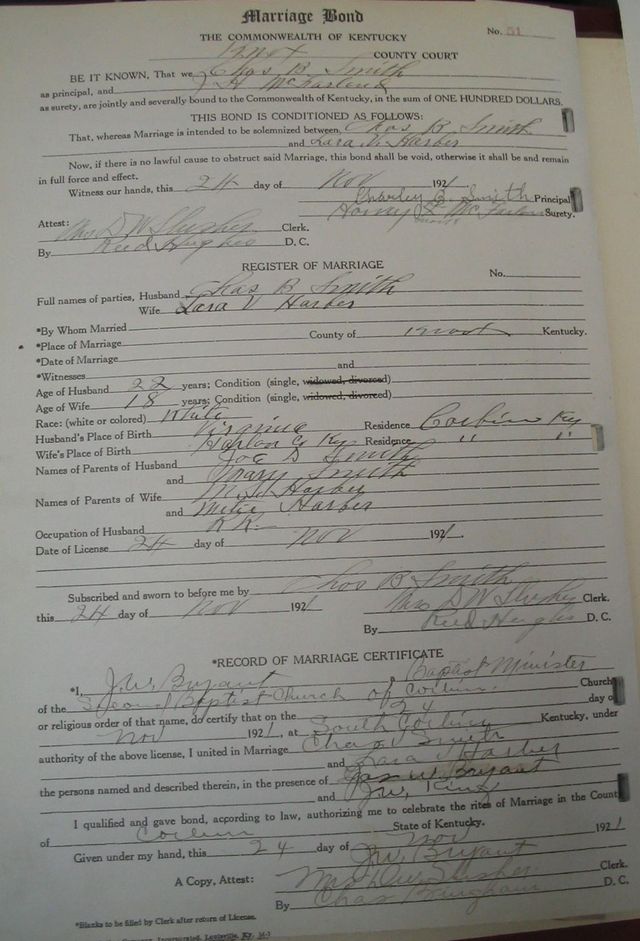 Marriage Bond
THE COMMONWEALTH OF KENTUCKY
No. 51
Knox COUNTY COURT
BE IT KNOWN, That we Chas B Smith
as principal, and J H McFarland
as surety, are jointly and severally bound to the Commonwealth of Kentucky, in the sum of ONE HUNDRED DOLLARS.
THIS BOND IS CONDITIONED AS FOLLOWS:
That, whereas Marriage is intended to be solemnized between Chas B Smith
and Zara V Harber
Now, if there is no lawful cause to obstruct said Marriage, this bond shall be void, otherwise it shall be and remain
in full force and effect.
Witness our hands, this 24 day of Nov 1921
Charley B. Smith Principal
Harvy McFarlan Surety.
Attest: Mrs D W Slusher Clerk.
By Reed Hughes D. C.
REGISTER OF MARRIAGE
No.
Full names of parties, Husband Chas B Smith
Wife Zara V Harber
*By Whom Married
*Place of Marriage County of Knox Kentucky.
*Date of Marriage
*Witnesses and
Age of Husband 22 years; Condition (single, widowed, divorced)
Age of Wife 18 years; Condition (single, widowed, divorced)
Race: (white or colored) White
Husband's Place of Birth Virginia Residence Corbin Ky
Wife's Place of Birth Harlan Co Ky Residence " "
Names of Parents of Husband Joe D Smith
and Mary Smith
Names of Parents of Wife Harber
and Harber
Occupation of Husband RR
Date of License 24 day of Nov 1921.
Subscribed and sworn to before me by Chas B Smith
this 24 day of Nov 1921 Mrs D W Slusher Clerk.
By Reed Hughes D. C.
*RECORD OF MARRIAGE CERTIFICATE
*I, J. W. Bryant, Baptist Minister
of the Second Baptist Church of Corbin. Church
or religious order of that name, do certify that on the 24 day of
Nov 1921, at South Corbin Kentucky, under
authority of the above license, I united in Marriage Chas Smith
and Zara Harber
the persons named and described therein, in the presence of Jas W Bryant
and J. W. King
I qualified and gave bond, according to law, authorizing me to celebrate the rites of Marriage in the Count
of Corbin State of Kentucky.
Given under my hand, this 24 day of Nov 1921
J W Bryant
A Copy, Attest: Mrs D W Slusher Clerk.
By Chas Bringham D. C.
*Blanks to be filled by Clerk after return of License.
Incorporated, Louisville, Ky.